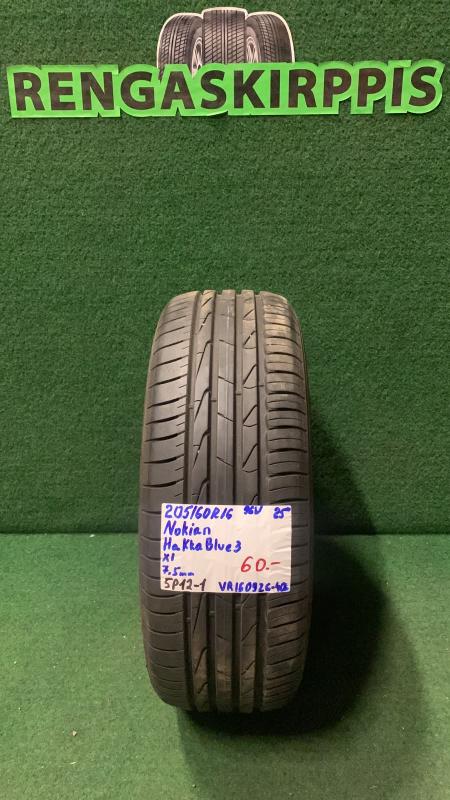 RENGASKIRPPIS
205/60R16 96V 25
Nokian
HaKKaBlue3
X1
7.5mm 60.-
5P12-1